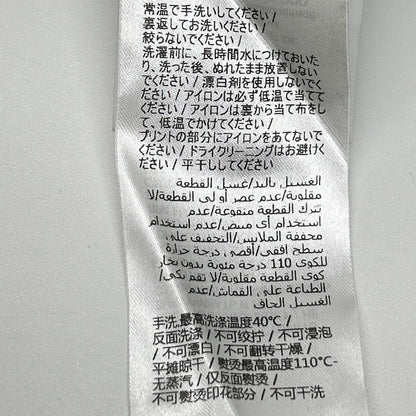 常温で手洗いしてください/
裏返してお洗いください/
絞らないでください/
洗濯前に、長時間水につけておいた
り、洗った後、ぬれたまま放置しない
でください/漂白剤を使用しないでく
ださい/アイロンは必ず低温で当ててく
ださい/アイロンは裏から当て布をし
て、低温でかけてください/
プリントの部分にアイロンをあてないで
ください/ドライクリーニングはお避けく
ださい/平干ししてください
الغسيل باليد/غسل القطعة
مقلوبة/عدم عصر أو لي القطعة/لا
تترك القطعة منقوعة/عدم
استخدام أي مبيض/عدم استخدام
مجففة الملابس/التجفيف على
سطح افقي/أقصى درجة حرارة
للكوي 110 درجة مئوية بدون بخار
/كوي القطعة مقلوبة/لا تقم بكي
الطباعة على القماش/عدم
الغسيل الجاف
手洗,最高洗涤温度40℃/
反面洗涤/不可绞拧/不可浸泡
/不可漂白/不可翻转干燥/
平摊晾干/熨烫最高温度110℃-
无蒸汽/仅反面熨烫/
不可熨烫印花部分/不可干洗